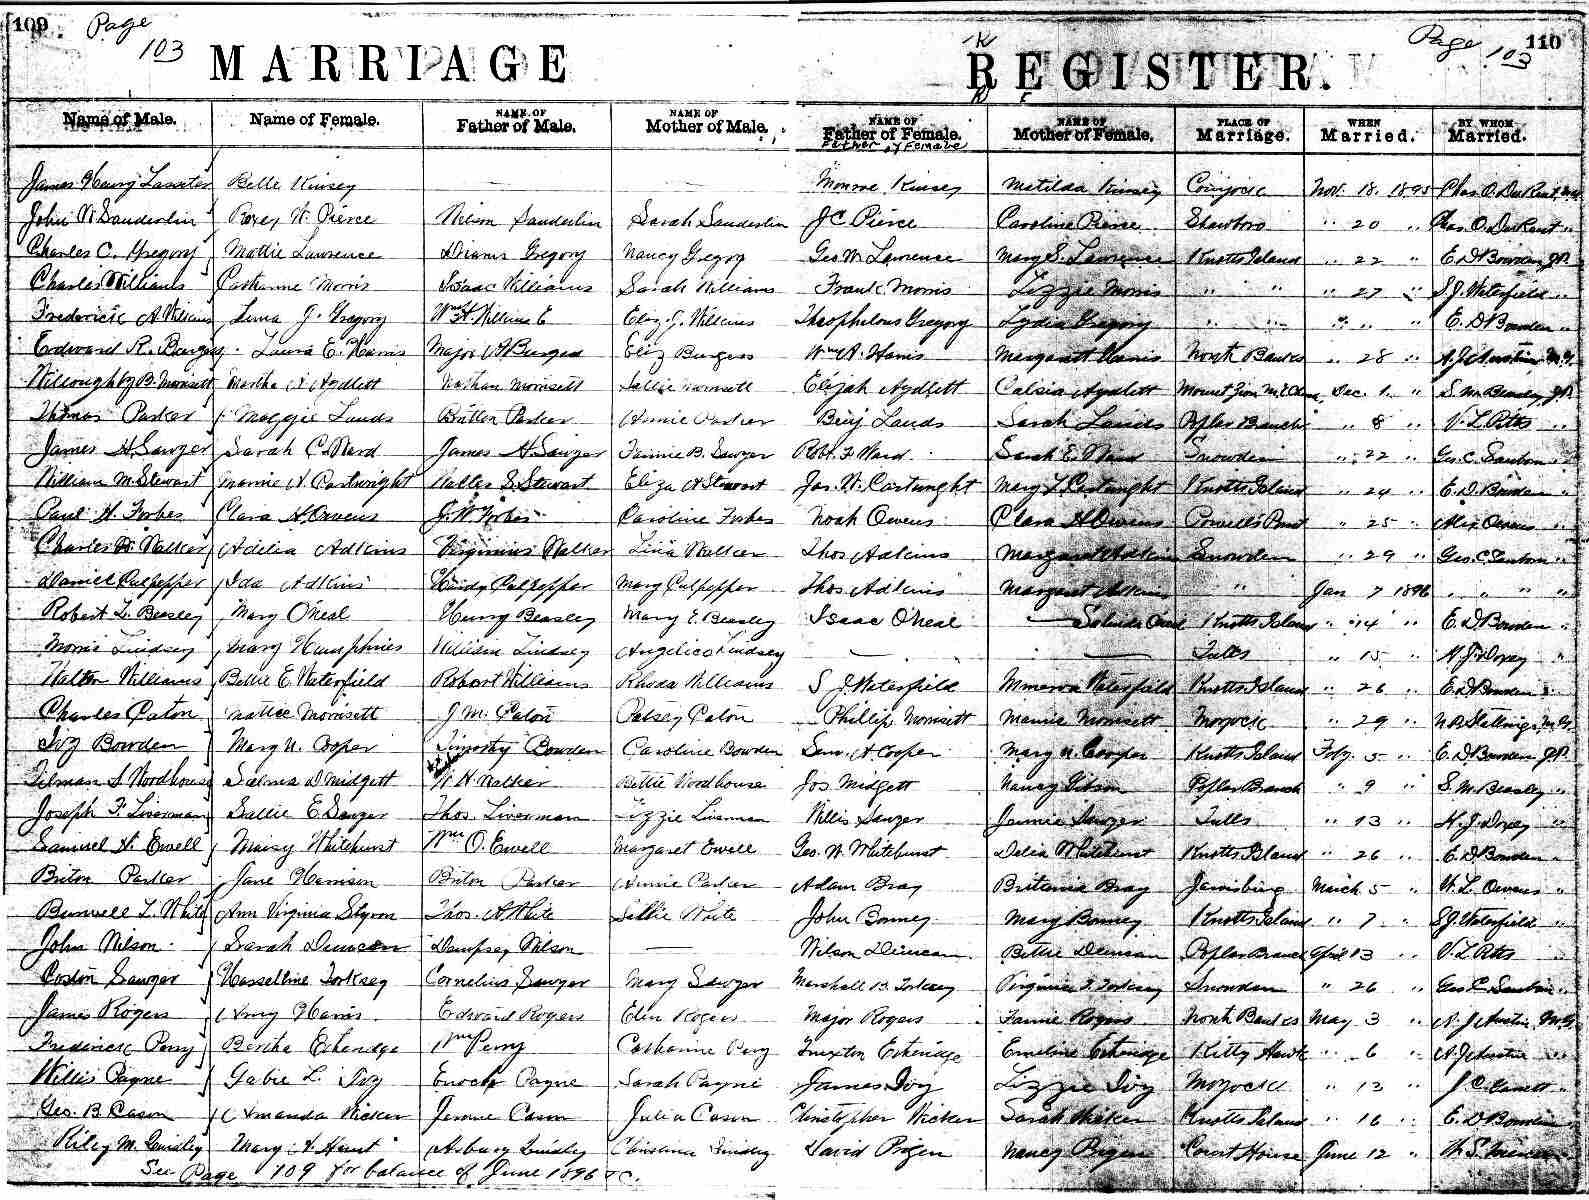 109. Page 103 Page 103 110
MARRIAGE REGISTER.
Name of Male. Name of Female. NAME OF Father of Male. NAME OF Mother of Male. NAME OF Father of Female. NAME OF Mother of Female. PLACE OF Marriage. WHEN Married. BY WHOM Married.
Father of Female
James Henry Lassiter Belle Kinsey — — Monroe Kinsey Matilda Kinsey Coinjock Nov. 18. 1895 Chas. O. DuRant
John W Sanderlin Roxey W. Pierce Wilson Sanderlin Sarah Sanderlin J C Pierce Caroline Pierce Shawboro " 20 " Chas. O. DuRant "
Charles C. Gregory Mollie Lawrence Gregory Nancy Gregory Geo W Lawrence Mary S. Lawrence Knotts Island " 22 " E. D Bowden J.P.
Charles Williams Catharine Morris Isaac Williams Sarah Williams Frank Morris Lizzie Morris " " " 27 " S. J. Waterfield "
Frederick A Williams Luna J. Gregory Wm H. Williams Eliz. J. Williams Theophilous Gregory Lydia Gregory " " " " E. D Bowden "
Edward R. Burgess Laura E. Harris Major W Burgess Eliz Burgess Wm A. Harris Margarett Harris North Banks " 28 " A. J. Austin M.G.
Willoughby B. Morrisett Martha A Aydlett Nathan Morrisett Sallie Morrisett Elijah Aydlett Calsia Aydlett Mount Zion M. E. Dec. 1 " S. M. Beasley J.P.
Thomas Parker Maggie Lands Britton Parker Annie Parker Benj Lands Sarah Lands Poplar Branch " 8 " V. L Pitts "
James H Sawyer Sarah C. Ward James H Sawyer Fannie B. Sawyer Robt. F Ward Sarah E. Ward Snowden " 22 " Geo. C. Sanborn "
William M. Stewart Mamie A. Cartwright Walter S. Stewart Eliza A Stewart Jas. W. Cartwright Mary L Cartwright Knotts Island " 24 " E. D. Bowden "
Paul H Forbes Clara A. Owens J. W. Forbes Caroline Forbes Noah Owens Clara A Owens Powells Point " 25 " Alex Owens "
Charles H. Walker Adelia Adkins Virginius Walker Walker Thos Adkins Margaret Adkins Snowden " 29 " Geo. C. Sanborn "
Daniel Culpepper Ida Adkins Hardy Culpepper Mary Culpepper Thos Adkins Margaret Adkins " Jan 7 1896 " " " "
Robert L. Beasley Mary O'Neal Henry Beasley Mary E. Beasley Isaac O'Neal O'neal Knotts Island " 14 " E. D Bowden "
Morris Lindsey Mary Humphries William Lindsey Angelico Lindsey — — Tulls " 15 " H. J. Doxey "
Walter Williams Bettie E Waterfield Robert Williams Rhoda Williams S J. Waterfield Minerva Waterfield Knotts Island " 26 " E D Bowden "
Charles Caton Morrisett J. M. Caton Patsey Caton Phillip Morrisett Mamie Morrisett Moyock " 29 " N. B. Stallings M.G.
Ivy Bowden Mary N. Cooper Timothy Bowden Caroline Bowden Sam. A Cooper Mary N. Cooper Knotts Island Feby. 5 " E. D Bowden J.P.
Tilman S Woodhouse Salma D Midgett W. H Walker Bettie Woodhouse Jos Midgett Nancy Gibson Poplar Branch " 9 " S. M. Beasley "
Joseph F. Liverman Sallie E. Sawyer Thos Liverman Lizzie Liverman Willis Sawyer Jennie Sawyer Tulls " 13 " H. J. Doxey "
Samuel W. Ewell Maisy Whitehurst Wm O. Ewell Margaret Ewell Geo. W. Whitehurst Delia Whitehurst Knotts Island " 26 " E. D. Bowden "
Briton Parker Jane Harrison Briton Parker Annie Parker Adam Bray Britania Bray Jarvisburg March 5 " W. L. Owens "
Burwell T. White Ann Virginia Styron Thos. A White Sallie White John Bonney Mary Bonney Knotts Island " 7 " S. J. Waterfield "
John Wilson Sarah Duncan Dempsey Wilson — Wilson Duncan Bettie Duncan Poplar Branch April 13 " V. L Pitts "
Coston Sawyer Hasseltine Torksey Cornelius Sawyer Mary Sawyer Marshall B. Torksey Virginia F. Torksey Snowden " 26 " Geo C. Sanborn "
James Rogers Amy Harris Edward Rogers Ellen Rogers Major Rogers Fannie Rogers North Banks May 3 " A. J. Austin M.G.
Frederick Perry Bertha Etheridge Wm Perry Catharine Perry Truxton Etheridge Emeline Etheridge Kitty Hawk " 6 " A. J. Austin "
Willis Payne Gabie L. Ivy Enoch Payne Sarah Payne James Ivy Lizzie Ivy Moyock " 13 " J. C. "
Geo. B. Cason Amanda Wicker Jerome Cason Julia Cason Christopher Wicker Sarah Wicker Knotts Island " 16 " E. D Bowden "
Riley M. Quidley Mary A Hunt Asbury Quidley Christiana Quidley David Nancy Court House June 12 "
See Page 109 for balance of June 1896 &C.